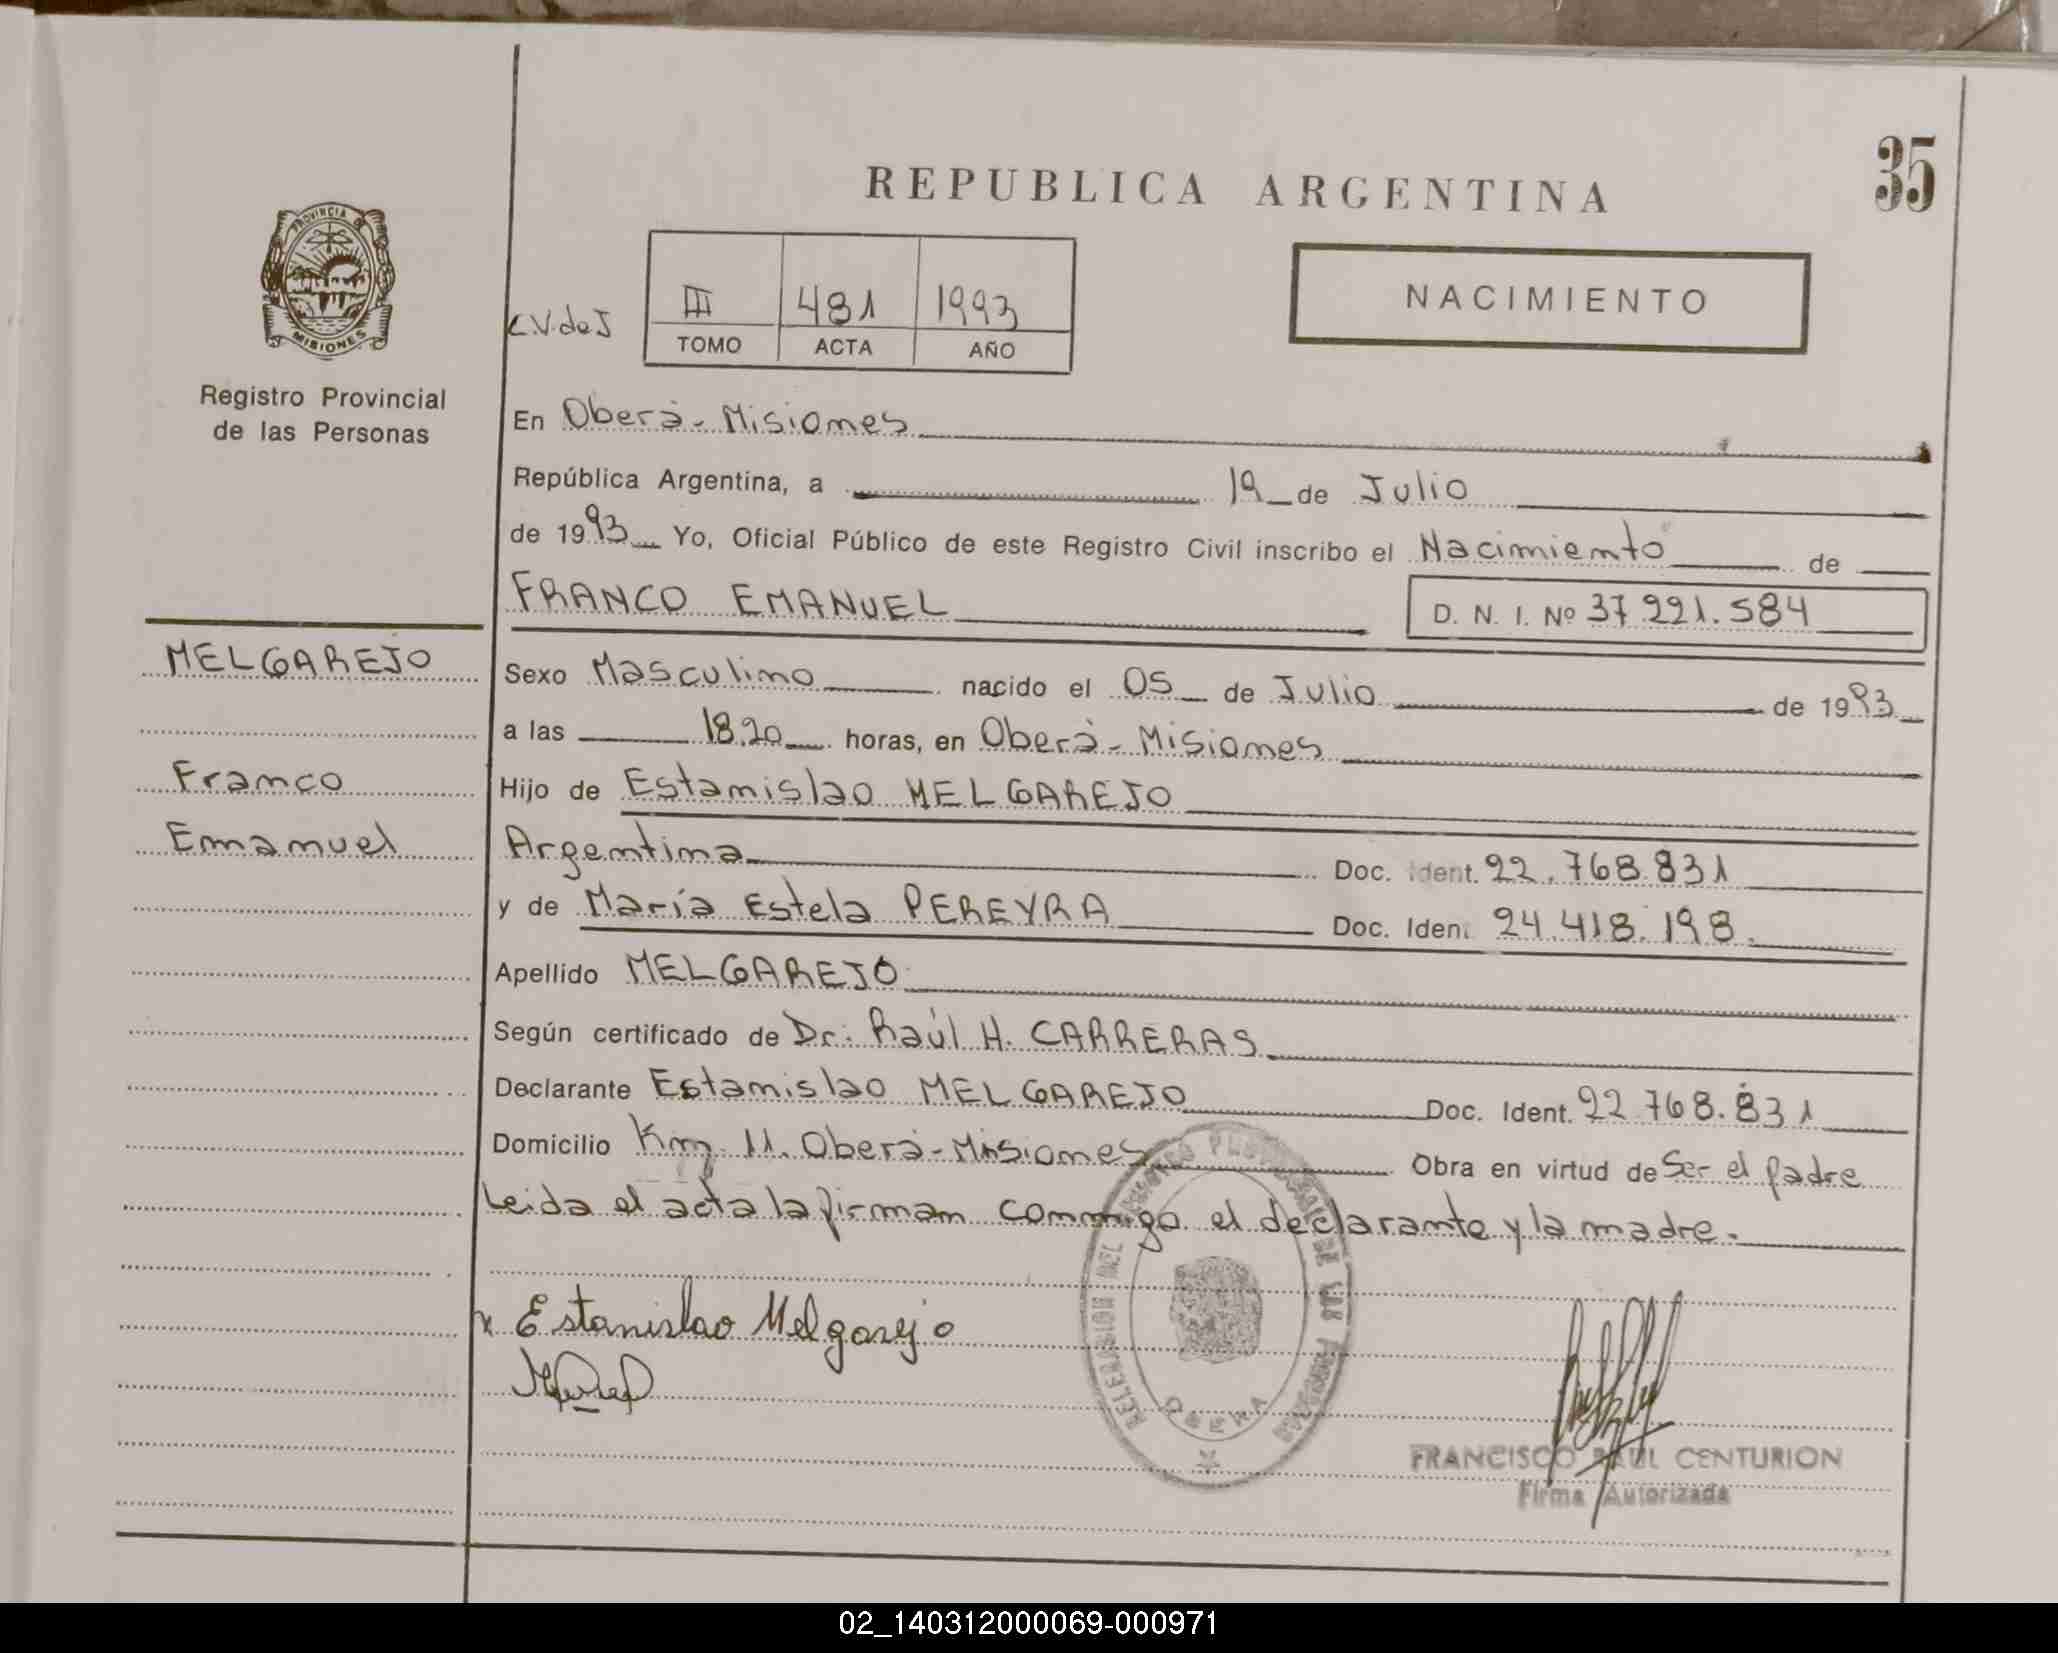 REPUBLICA ARGENTINA
35
PROVINCIA DE
MISIONES
Registro Provincial
de las Personas
C.V.deJ
III 481 1993
TOMO ACTA AÑO
NACIMIENTO
En Oberá-Misiones
República Argentina, a 19 de Julio
de 1993 Yo, Oficial Público de este Registro Civil inscribo el Nacimiento de
FRANCO EMANUEL
D. N. I. Nº 37.221.584
MELGAREJO
Sexo Masculino nacido el 05 de Julio de 1993
a las 18.20 horas, en Oberá-Misiones
Franco
Hijo de Estanislao MELGAREJO
Emanuel
Argentina Doc. Ident. 22.768.831
y de María Estela PEREYRA Doc. Iden. 24.418.198.
Apellido MELGAREJO
Según certificado de Dr. Raúl H. CARRERAS
Declarante Estanislao MELGAREJO Doc. Ident. 22.768.831
Domicilio Km. 11. Oberá-Misiones Obra en virtud de Ser el padre
Leida el acta la firman conmigo el declarante y la madre.
Estanislao Melgarejo
DELEGACION DEL REGISTRO PROVINCIAL DE LAS PERSONAS
OBERA
FRANCISCO RAUL CENTURION
Firma Autorizada
02_140312000069-000971